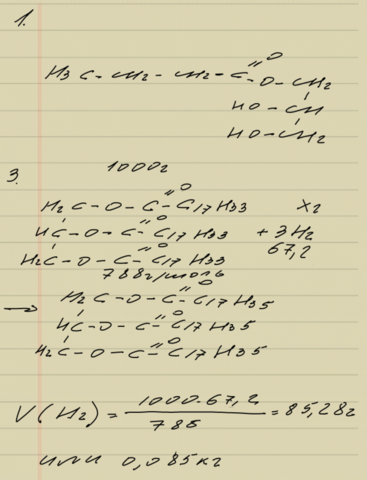 1.
H3C-CH2-CH2-C=O-O-CH2
HO-CH
HO-CH2
3. 1000г
H2C-O-C=O-C17H33 x2
HC-O-C=O-C17H33 + 3H2
H2C-O-C=O-C17H33 67,2
788г/моль
→ H2C-O-C=O-C17H35
HC-O-C=O-C17H35
H2C-O-C=O-C17H35
V(H2) = 1000·67,2 / 788 = 85,28г
или 0,085кг